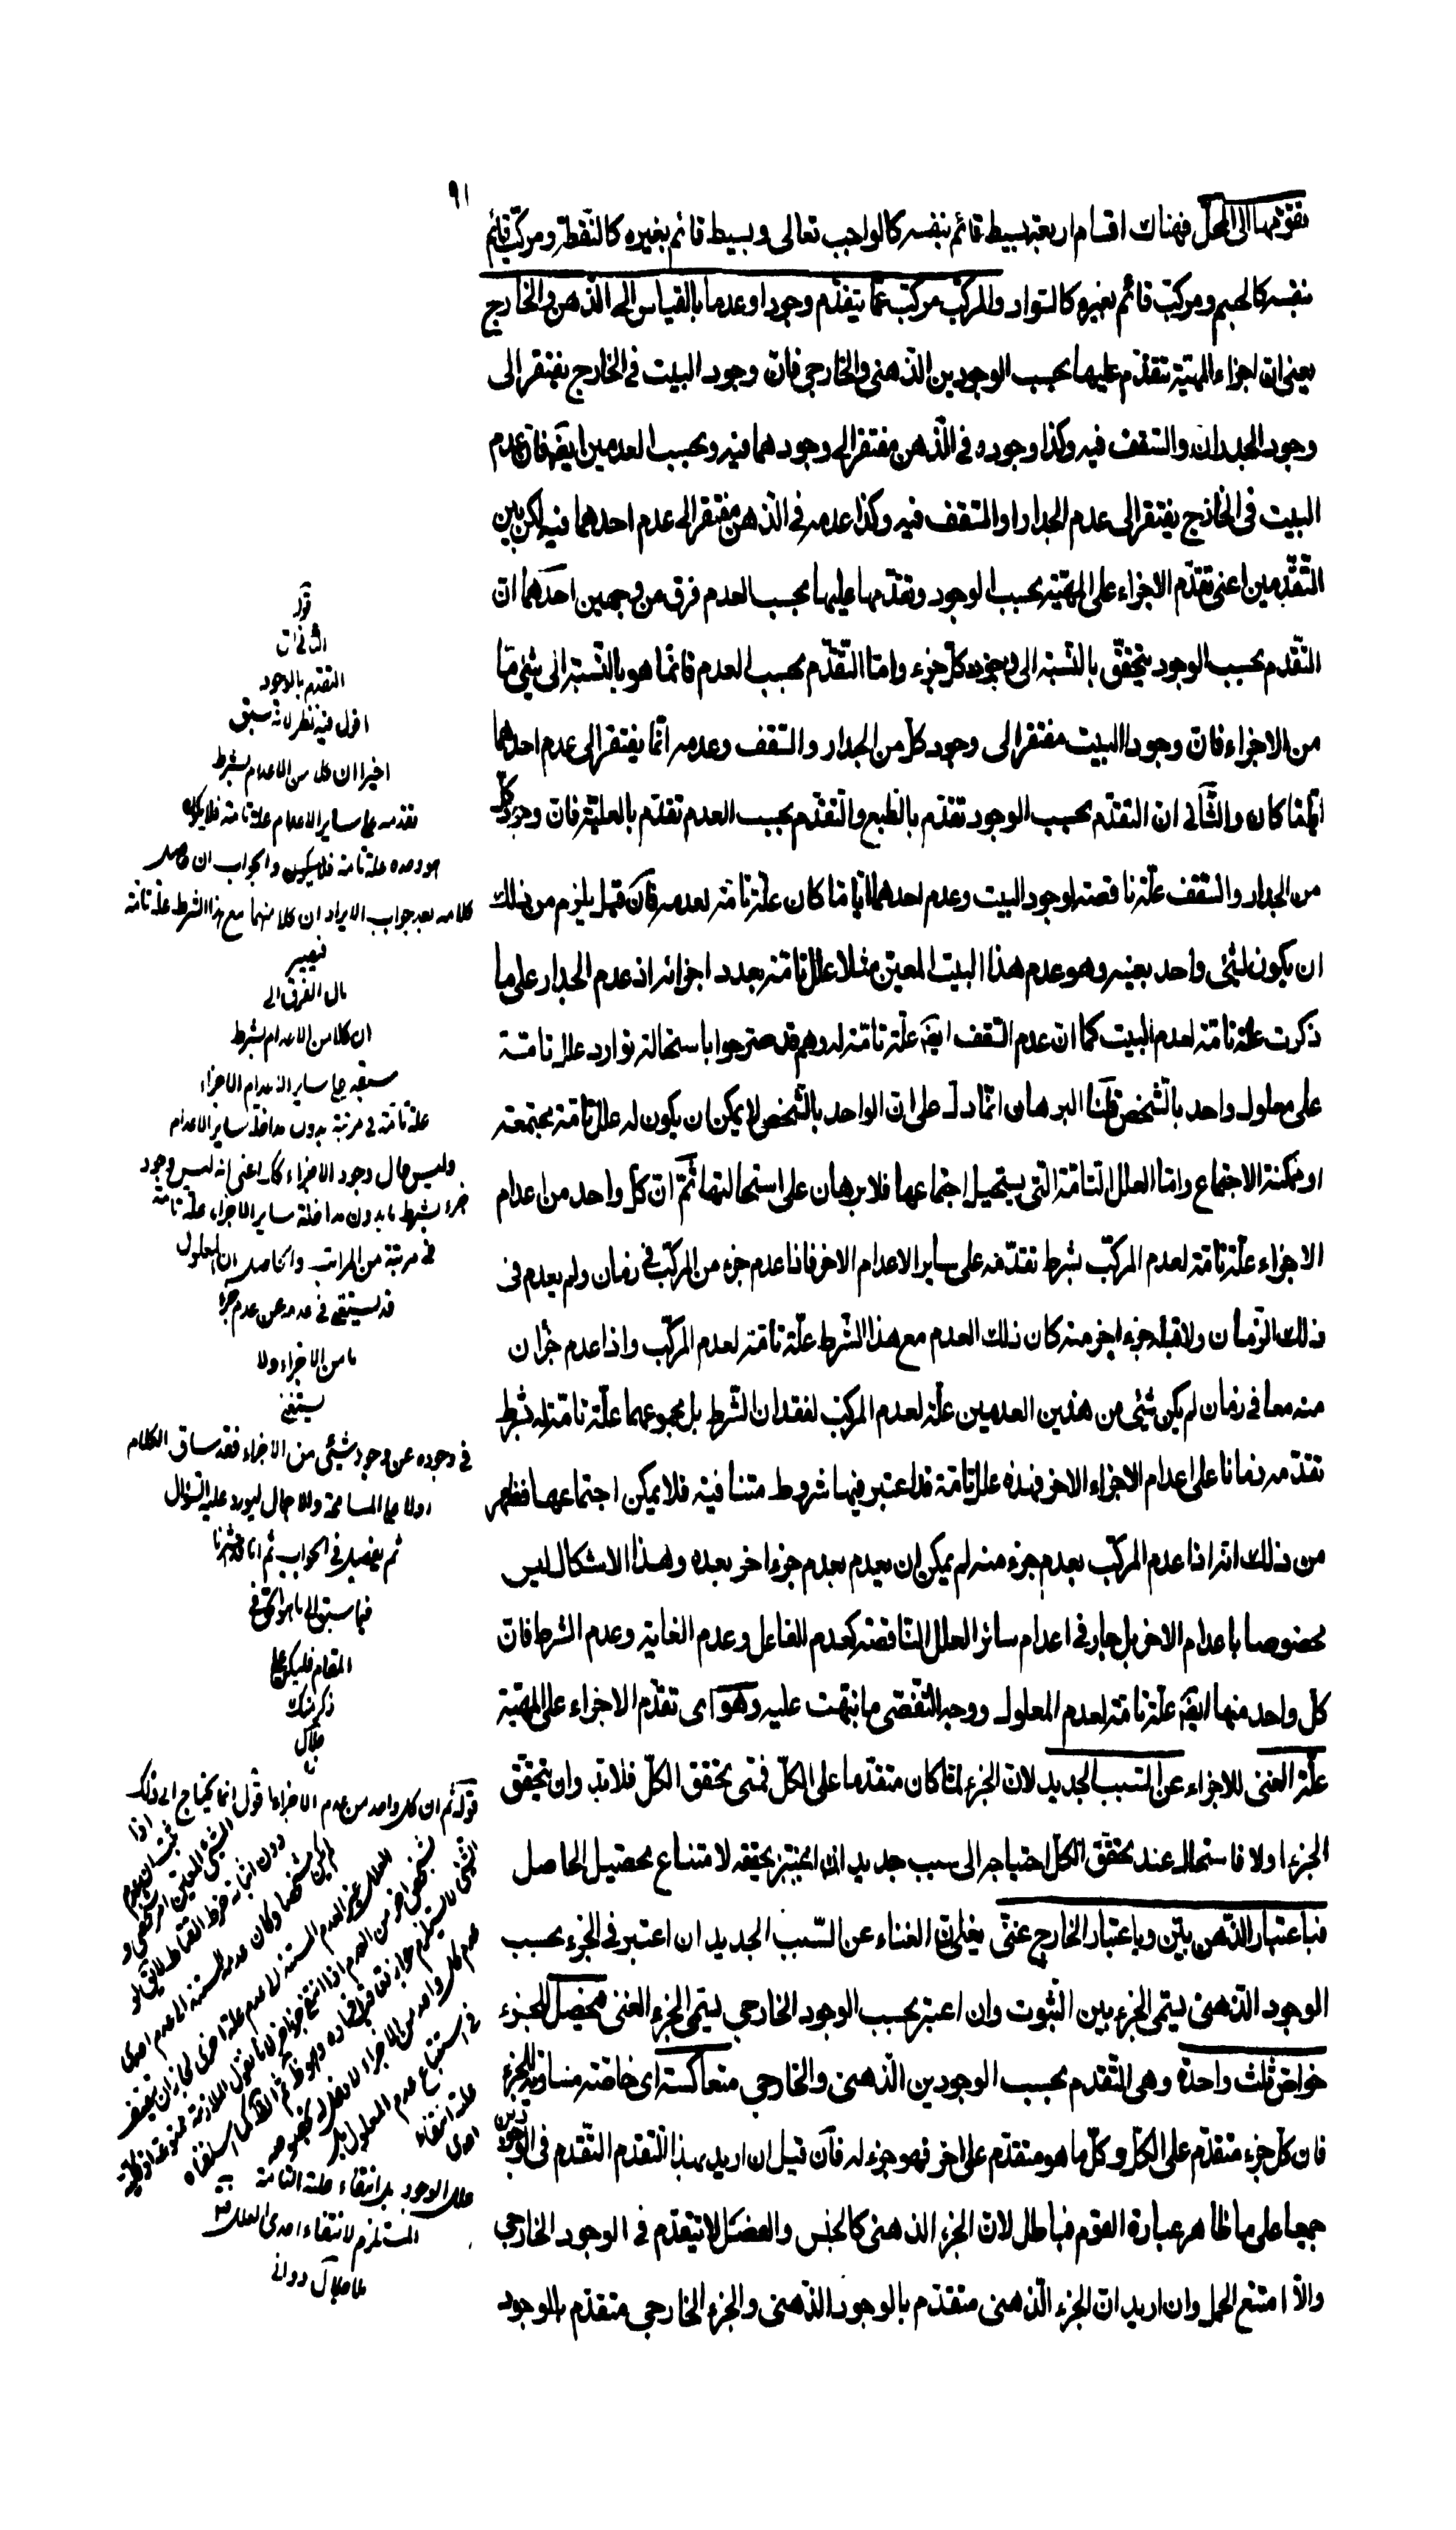 ٩١
تقوّمها الى المحلّ فهناك اقسام اربعة بسيط قائم بنفسه كالواجب تعالى وبسيط قائم بغيره كالنّقطة ومركّب قائم
بنفسه كالجسم ومركّب قائم بغيره كالسّواد والمركّب مركّب عمّا يتقدّم وجودا وعدما بالقياس الى الذّهن والخارج
يعنى ان اجزاء المهيّة تتقدّم عليها بحسب الوجودين الذّهنى والخارجى فان وجود البيت فى الخارج يفتقر الى
وجود الجدران والسّقف فيه وكذا وجوده فى الذّهن مفتقر الى وجودهما فيه وبحسب العدمين ايضا فان عدم
البيت فى الخارج يفتقر الى عدم الجدار او السّقف فيه وكذا عدمه فى الذّهن مفتقر الى عدم احدهما فيه لكن بين
التّقدّمين اعنى تقدّم الاجزاء على المهيّة بحسب الوجود وتقدّمها عليها بحسب العدم فرق من وجهين احدهما ان
التّقدّم بحسب الوجود يتحقّق بالنّسبة الى كلّ جزء وامّا التّقدّم بحسب العدم فانّما هو بالنّسبة الى شئ مّا
من الاجزاء فان وجود البيت مفتقر الى وجود كلّ من الجدار والسّقف وعدمه انّما يفتقر الى عدم احدهما
ايّهما كان والثّانى ان التّقدّم بحسب الوجود تقدّم بالطّبع والتّقدّم بحسب العدم تقدّم بالعليّة فان وجود كلّ
من الجدار والسّقف علّة ناقصة لوجود البيت وعدم احدهما ايّا ما كان علّة تامّة لعدمه فان قيل يلزم من ذلك
ان يكون لشئ واحد بعينه وهو عدم هذا البيت المعيّن مثلا علل تامّة بعدد اجزائه اذ عدم الجدار على ما
ذكرت علّة تامّة لعدم البيت كما ان عدم السّقف ايضا علّة تامّة له وهم قد صرّحوا باستحالة توارد علل تامّة
على معلول واحد بالشّخص قلنا البرهان انّما دلّ على ان الواحد بالشّخص لا يمكن ان يكون له علل تامّة مجتمعة
او ممكنة الاجتماع وامّا العلل التامّة التى يستحيل اجتماعها فلا برهان على استحالتها ثمّ ان كلّ واحد من اعدام
الاجزاء علّة تامّة لعدم المركّب بشرط تقدّمه على سائر الاعدام الاخر فاذا عدم جزء من المركّب فى زمان ولم يعدم فى
ذلك الزّمان ولا قبله جزء اخر منه كان ذلك العدم مع هذا الشّرط علّة تامّة لعدم المركّب واذا عدم جزان
منه معا فى زمان لم يكن شئ من هذين العدمين علّة لعدم المركّب لفقدان الشّرط بل مجموعهما علّة تامّة له بشرط
تقدّمه زمانا على اعدام الاجزاء الاخر فهذه علل تامّة قد اعتبر فيها شروط متنافية فلا يمكن اجتماعها فظهر
من ذلك انه اذا عدم المركّب بعدم جزء منه لم يمكن ان يعدم بعدم جزء اخر بعده وهذا الاشكال ليس
مخصوصا باعدام الاجزاء بل جار فى اعدام سائر العلل النّاقصة كعدم الفاعل وعدم الغاية وعدم الشرط فان
كلّ واحد منها ايضا علّة تامّة لعدم المعلول ووجه التّفصّى ما نبّهت عليه وهو اى تقدّم الاجزاء على المهيّة
علّة الغنى للاجزاء عن السّبب الجديد لان الجزء لمّا كان متقدّما على الكلّ فمتى تحقق الكلّ فلا بدّ وان يتحقق
الجزء اولا فاستحال عند تحقّق الكلّ احتياجه الى سبب جديد لتحققه لامتناع تحصيل الحاصل
فباعتبار الذّهن بيّن وباعتبار الخارج غنىّ يعنى ان الغناء عن السّبب الجديد ان اعتبر فى الجزء بحسب
الوجود الذّهنى يسمّى الجزء بيّن الثّبوت وان اعتبر بحسب الوجود الخارجى يسمّى الجزء الغنى فيحصل للجزء
خواصّ ثلث واحدة وهى التّقدم بحسب الوجودين الذّهنى والخارجى متعاكسة اى خاصّة مساوية للجزء
فان كلّ جزء متقدّم على الكلّ وكلّ ما هو متقدّم على اخر فهو جزء له فان قيل ان اريد بهذا التّقدم التّقدم فى الوجودين
جميعا على ما ظاهر عبارة القوم فباطل لان الجزء الذهنى كالجنس والفصل لا يتقدّم فى الوجود الخارجى
والّا امتنع الحمل وان اريد ان الجزء الذّهنى متقدّم بالوجود الذّهنى والجزء الخارجى متقدّم بالوجود
قوله
الثانى ان
التقدم بالوجود
اقول فيه نظر لانه سبق
اخيرا ان كل من الاعدام بشرط
تقدمه على ساير الاعدام علة تامة فلا يكون
هو وحده علة تامة والجواب ان حاصل
كلامه بعد جواب الايراد ان كلا منهما مع هذا الشرط علة تامة
فيصير
مال الفرق الى
ان كلا من الاعدام بشرط
سبقه على ساير الاعدام الاجزاء
علة تامة فى مرتبة بدون مداخلة ساير الاعدام
وليس حال وجود الاجزاء كذلك اعنى انه ليس وجود
جزء بشرط ما بدون مداخلة ساير الاجزاء علة تامة
فى مرتبة من المراتب والحاصل ان المعلول
قد يستغنى فى عدمه عن عدم جزء
ما من الاجزاء ولا
يستغنى
فى وجوده عن وجود شئ من الاجزاء فقد ساق الكلام
اولا على المسامحة والاجمال ليورد عليه السؤال
ثم يفصل فى الجواب ثم انا قد اشرنا
فيما سبق الى ما هو الحق فى
المقام فليكن على
ذكر منك
جلال
قوله ثم ان كل واحد من عدم الاجزاء اقول انما يحتاج الى ذلك
اذا
علل الوجود بل انتفاء علته التامة
المستلزم لانتفاء احدى العلل
ملا جلال دوانى